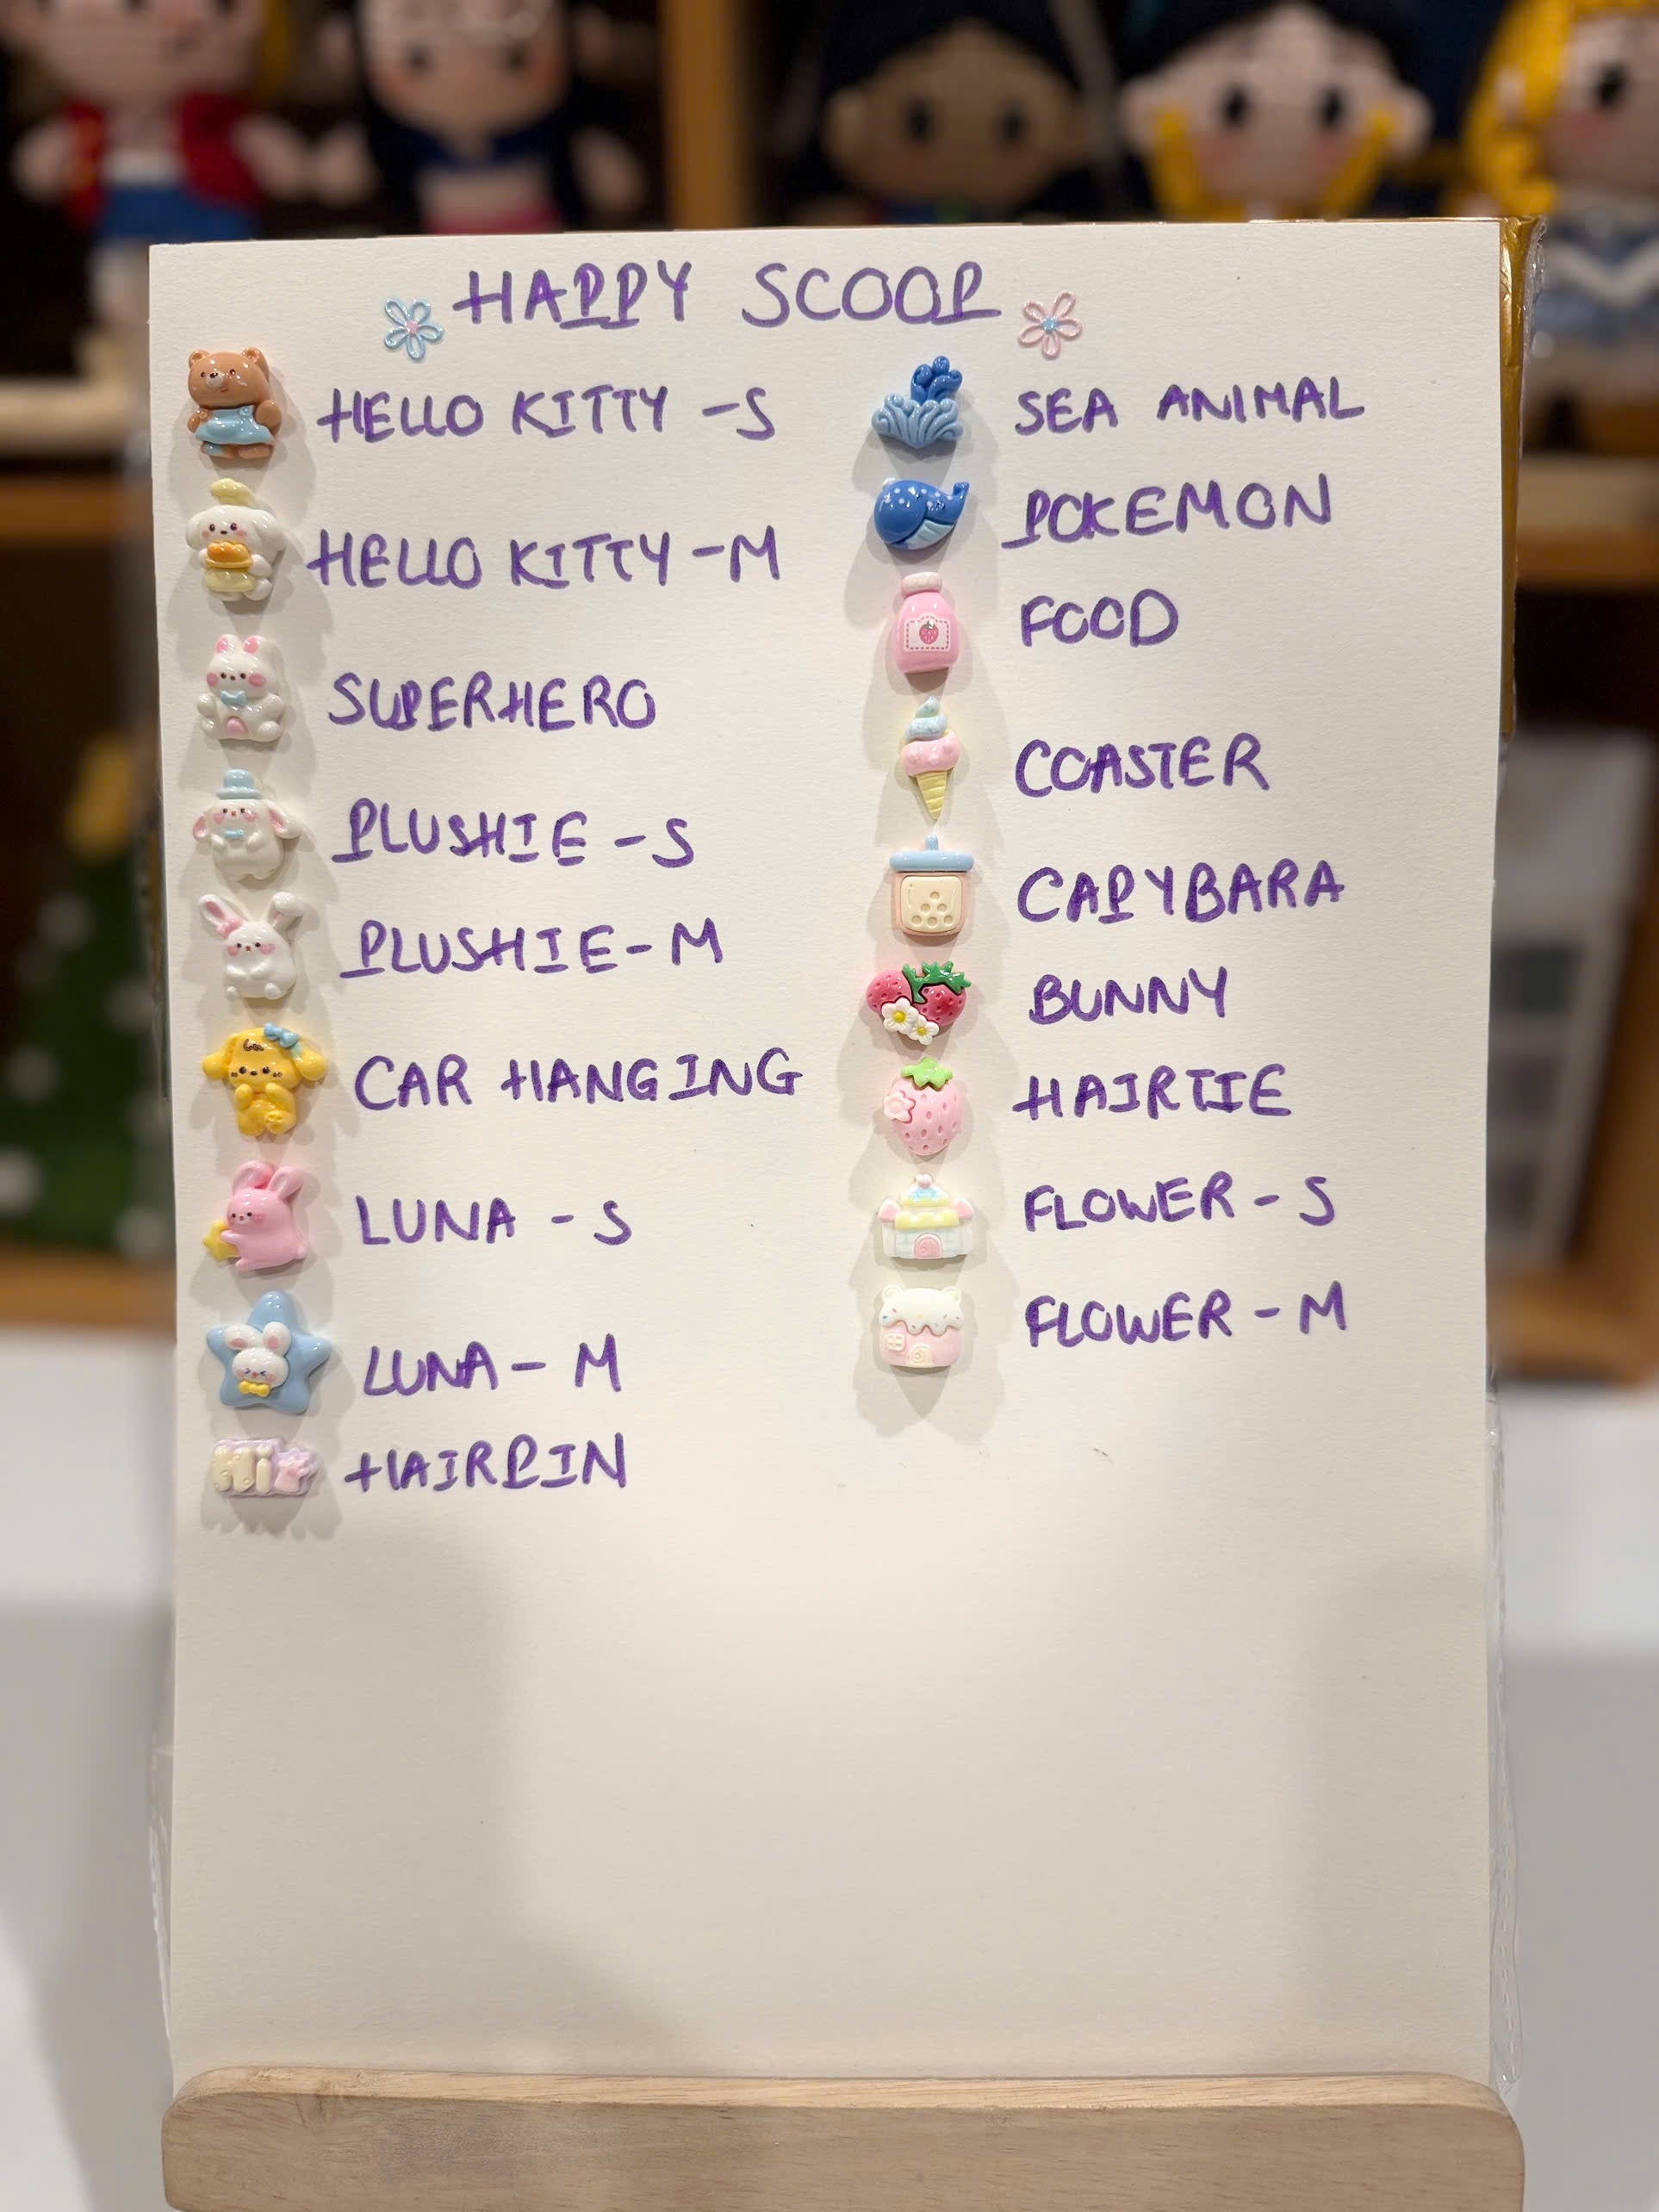 HAPPY SCOOP
HELLO KITTY - S
HELLO KITTY - M
SUPERHERO
PLUSHIE - S
PLUSHIE - M
CAR HANGING
LUNA - S
LUNA - M
HAIRPIN
SEA ANIMAL
POKEMON
FOOD
COASTER
CAPYBARA
BUNNY
HAIRTIE
FLOWER - S
FLOWER - M